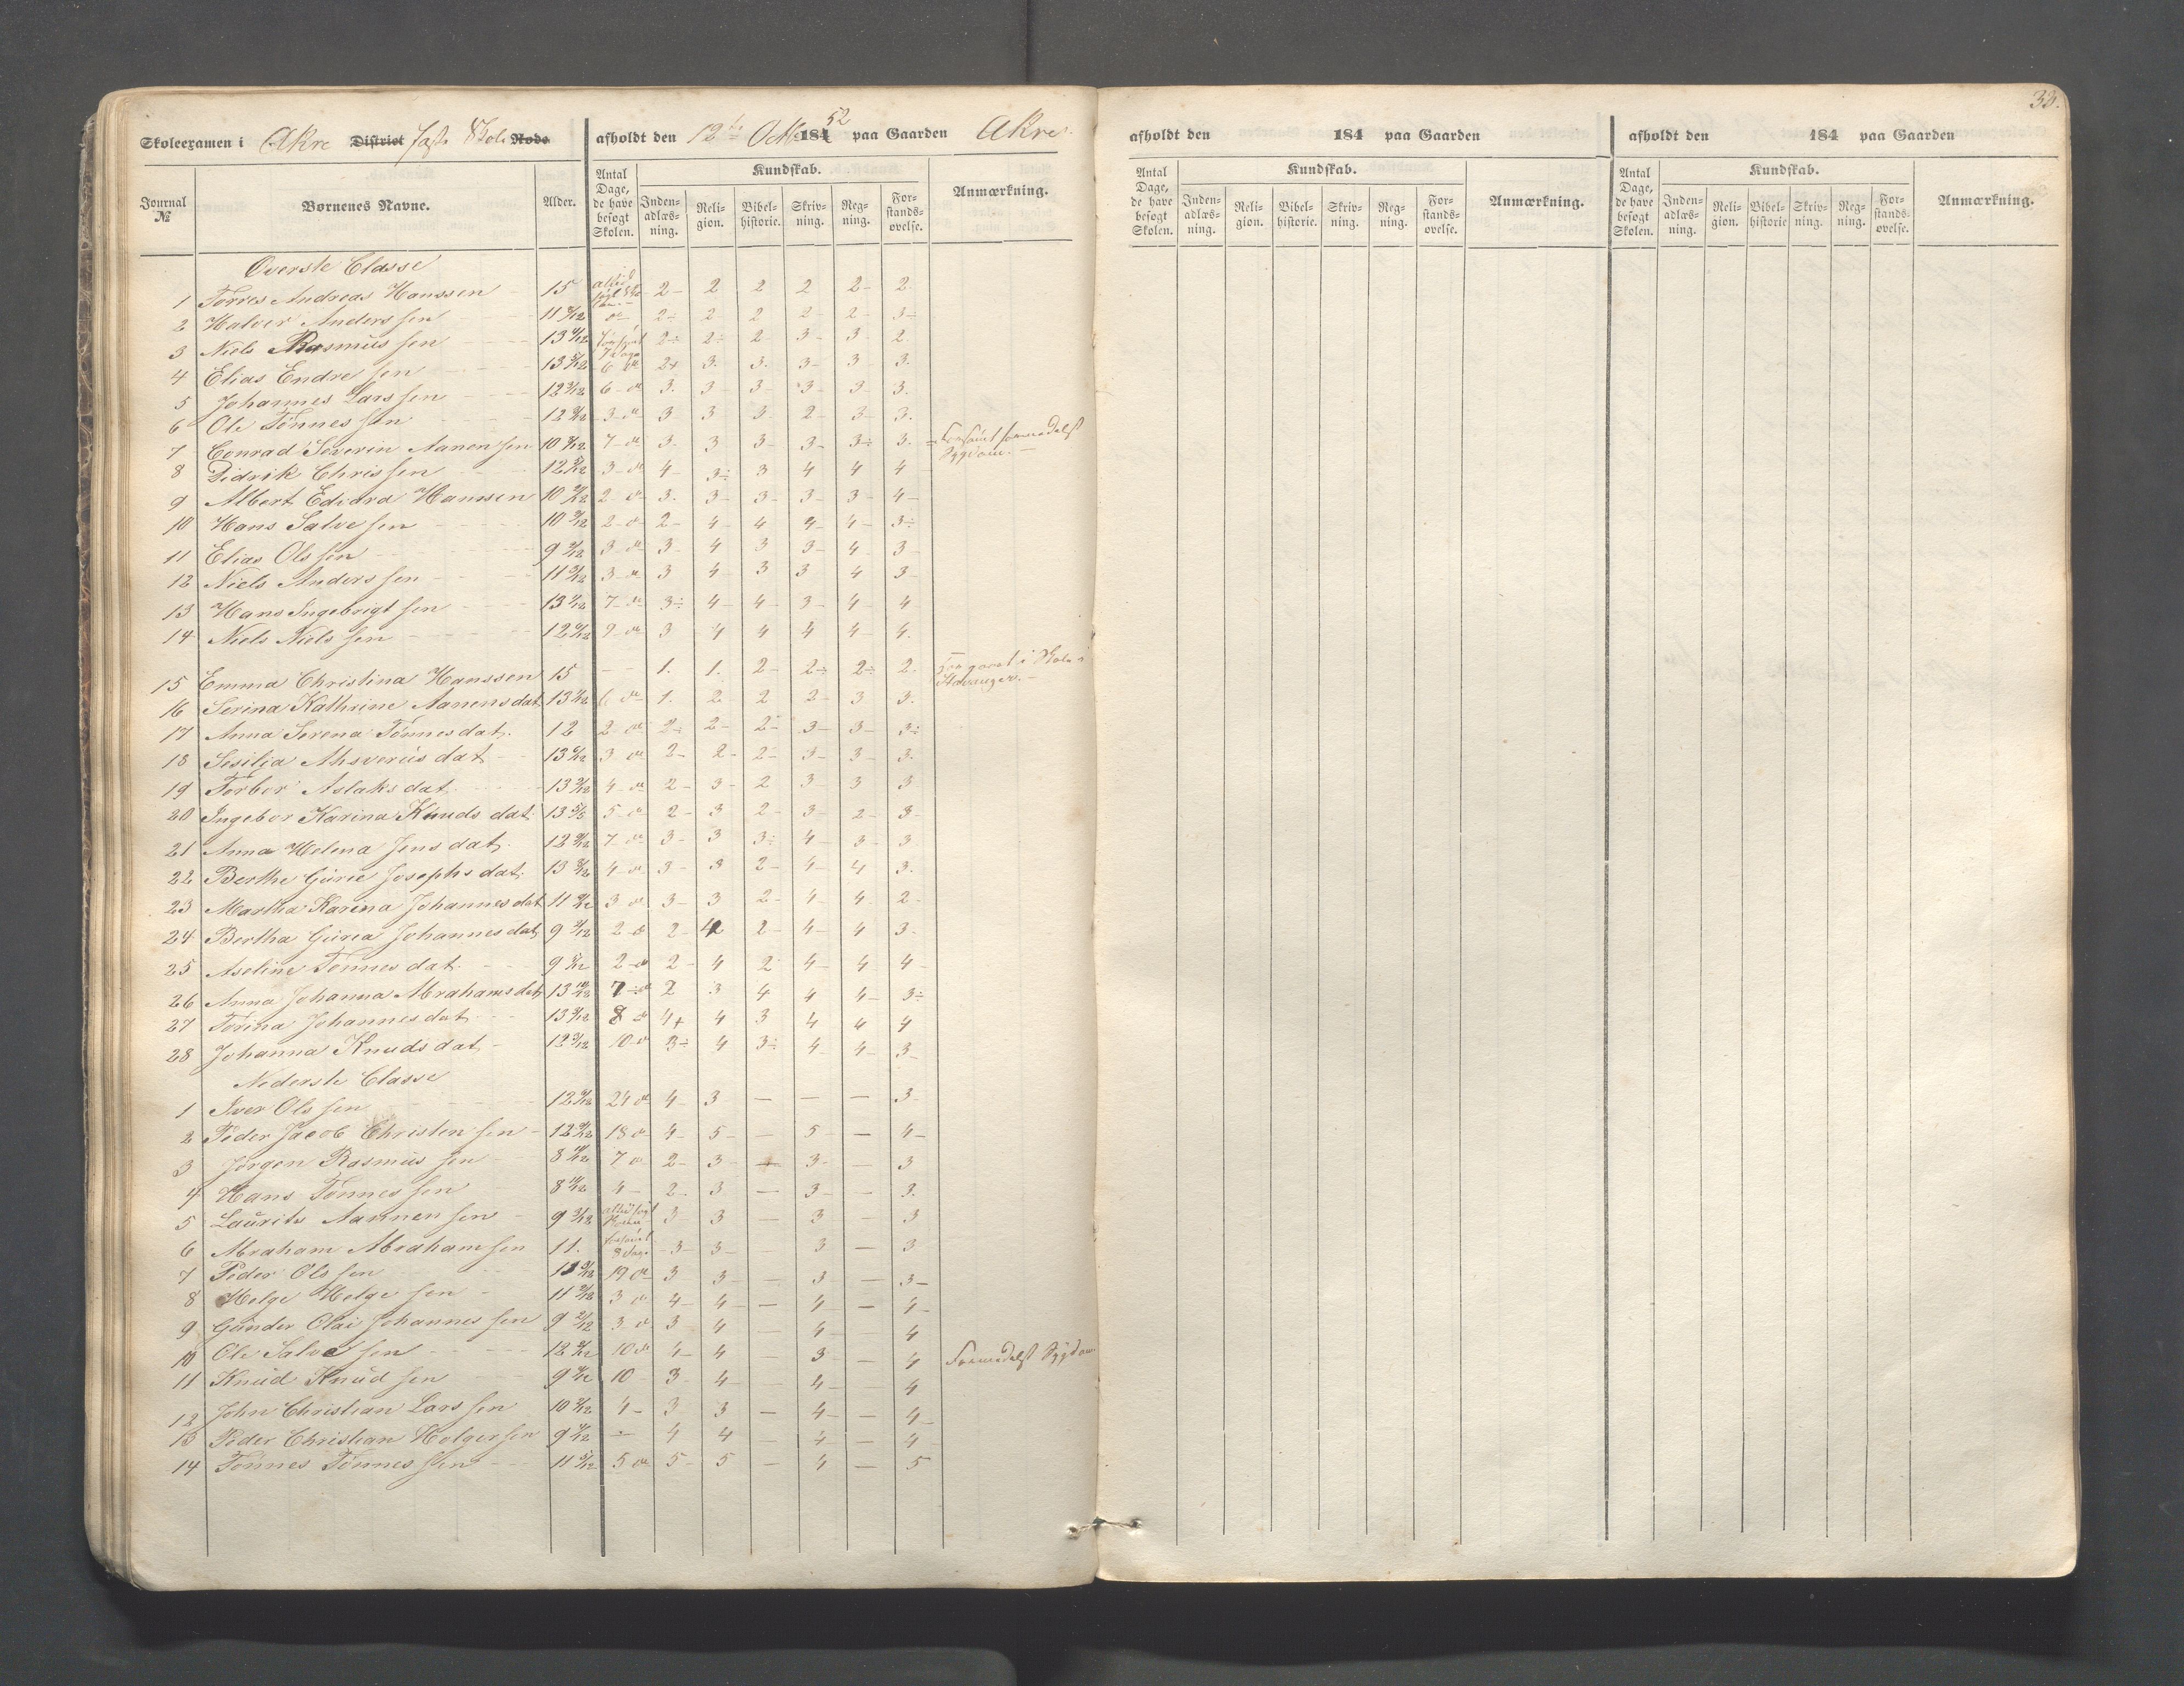 33.
Skoleexamen i Akre District faste Skole Rode afholdt den 12te Octbr 1852 paa Gaarden Akre.
Journal № Børnenes Navne. Alder. Antal Dage, de have besøgt Skolen. Kundskab. Inden-adlæs-ning. Reli-gion. Bibel-historie. Skriv-ning. Reg-ning. For-stands-øvelse. Anmærkning.
Øverste Classe
1 Torres Andreas Hanssen 15 2- 2 2 2 2- 2.
2 Halver Anderssen 2÷ 2 2 2- 2- 3÷
3 Niels Rasmussen 2÷ 2÷ 2 3- 3- 2.
4 Elias Endresen 6 2+ 3. 3. 3- 3 3.
5 Johannes Larssen 6 3. 3 3- 3 3- 3.
6 Ole Tønnessen 3 3 3 3. 2- 3- 3.
7 Conrad Severin Aanensen 7 3. 3 3- 3- 3÷ 3. Forsømt formedelst
Sygdom.
8 Didrik Chrissen 3 4- 3÷ 3 4 4 4
9 Albert Edvard Hanssen 2 3. 3- 3- 3- 3- 4-
10 Hans Salvesen 2 2- 4- 4 4- 4- 3÷
11 Elias Olssen 3 3- 4 3 3- 4 3
12 Niels Anderssen 3 3 4- 3 3 4 3-
13 Hans Ingebrigtsen 7 3÷ 4- 4- 3- 4- 4
14 Niels Nielssen 9 3 4 4 4 4- 4.
15 Emma Christina Hanssen 15 1. 1. 2- 2÷ 2÷ 2. i Skole i
Stavanger.
16 Serina Kathrine Aanensdat. 6 1. 2 2 2- 3 3.
17 Anna Serena Tønnesdat. 12 2 2÷ 2- 2÷ 3- 3- 3÷
18 Sesilia Ahsverusdat 3 2- 2- 2- 3- 3- 3.
19 Torbor Aslaksdat. 4 2- 3- 2 3 3 3
20 Ingebor Karina Knudsdat. 5 2- 3 2- 3- 2- 3-
21 Anna Helena Jensdat. 7 3- 3 3÷ 4- 3- 3
22 Berthe Gurie Josephsdat. 4 3- 3 2- 4- 4 3.
23 Martha Karina Johannesdat 3 3- 3 2- 4- 4 2-
24 Bertha Gurea Johannesdat. 2 2- 4 2- 4- 4 3.
25 Aseline Tønnesdat. 2 2- 4 2 4- 4 4-
26 Anna Johanna Abrahamsdat. 7 2 3 4 4 4- 3÷
27 Torina Johannesdat. 8 4+ 4 3 4 4 4
28 Johanna Knudsdat. 10 3÷ 4 3÷ 4- 4- 3-
Nederste Classe
1 Iver Olssen 24 4- 3 — — — 3-
2 Peder Jacob Christensen 18 4- 5- — 5- — 4-
3 Jørgen Rasmussen 7 2- 3- — 3- — 3
4 Hans Tønnessen 4- 2. 3 — 3- — 3.
5 Laurits Aannensen 3- 3 — 3 — 3
6 Abraham Abrahamsen 11. 8 Dage 3- 3- — 3 — 3
7 Peder Olssen 19 3 3- — 3- — 3-
8 Helge Helgesen 3 4- 4- — 4- — 4-
9 Gunder Olai Johannessen 3 3- 4 — 4- — 4
10 Ole Salvesen 10 4- 4 — 3- — 4 Formedelst Sygdom
11 Knud Knudsen 10 3- 4- — 4- — 4
12 John Christian Larssen 4- 3 3 — 4- — 4-
13 Peder Christian Holgersen — 4 4 4- — 4-
14 Tønnes Tønnessen 5 5- 5 — 4 — 5
afholdt den 184 paa Gaarden
Antal Dage, de have besøgt Skolen. Kundskab. Inden-adlæs-ning. Reli-gion. Bibel-historie. Skriv-ning. Reg-ning. For-stands-øvelse. Anmærkning.
afholdt den 184 paa Gaarden
Antal Dage, de have besøgt Skolen. Kundskab. Inden-adlæs-ning. Reli-gion. Bibel-historie Skriv-ning. Reg-ning. For-stands-øvelse. Anmærkning.